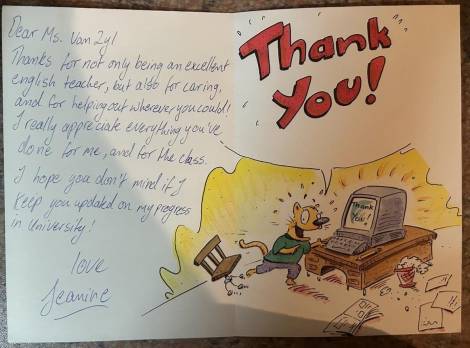 Dear Ms. Van Zyl
Thanks for not only being an excellent
english teacher, but also for caring,
and for helping out wherever you could!
I really appreciate everything you've
done for me, and for the class.
I hope you don't mind if I
keep you updated on my progress
in University!
love
Jeanine
Thank
You!
Thank
You!